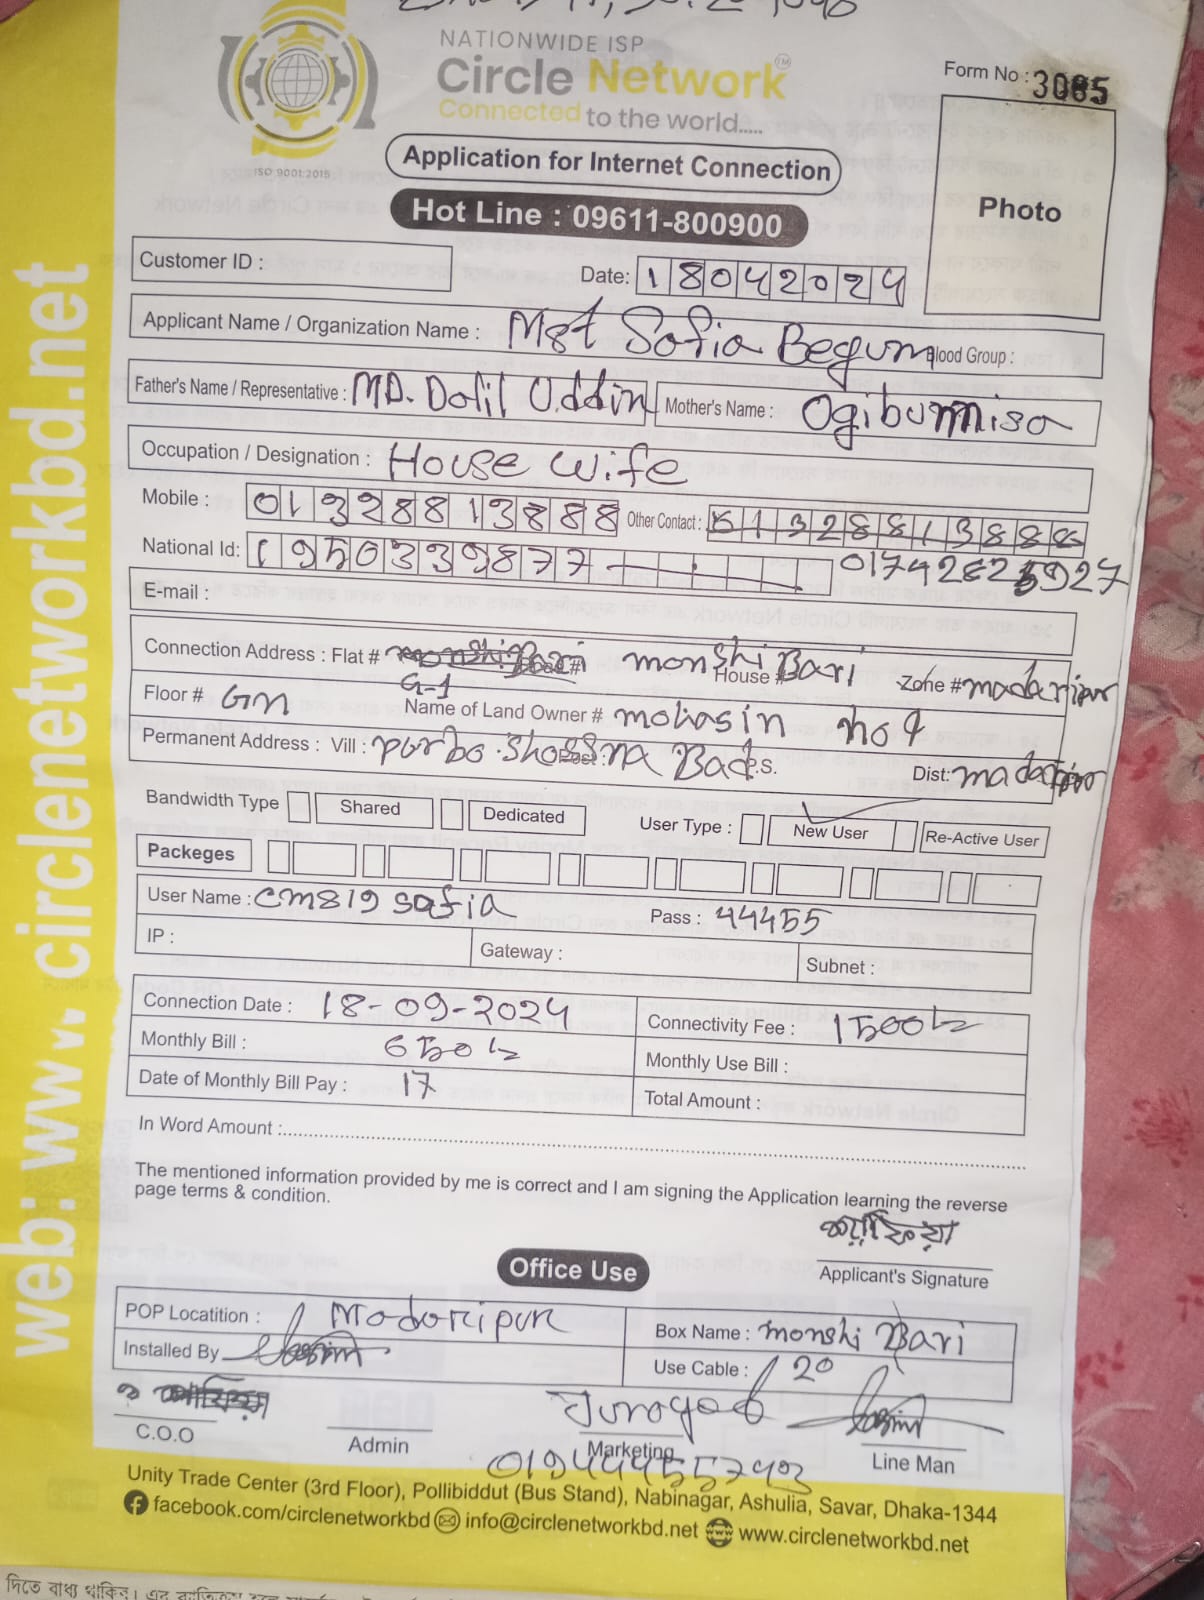 NATIONWIDE ISP
Circle Network TM
Connected to the world.....
ISO 9001:2015
Form No : 3085
Photo
Application for Internet Connection
Hot Line : 09611-800900
Customer ID :
Date: 18042024
Applicant Name / Organization Name : Mst Sofia Begum Blood Group :
Father's Name / Representative : MD. Dolil Uddin Mother's Name :
Occupation / Designation : House wife
Mobile : 01328813888 Other Contact : 01328813888
National Id: 1950339877
E-mail :
Connection Address : Flat # monshi Bari House # Zone # madaripur
G-1
Floor # Gm Name of Land Owner #
Permanent Address : Vill : Purbo Post : P.S. Dist: madaripur
Bandwidth Type Shared Dedicated User Type : New User Re-Active User
Packeges
User Name : cm819 safia Pass : 44455
IP : Gateway : Subnet :
Connection Date : 18-09-2024 Connectivity Fee : 1500/-
Monthly Bill : 650/- Monthly Use Bill :
Date of Monthly Bill Pay : 17 Total Amount :
In Word Amount :
The mentioned information provided by me is correct and I am signing the Application learning the reverse
page terms & condition.
Applicant's Signature
Office Use
POP Locatition : Madaripur Box Name : monshi Bari
Installed By Use Cable : 20
C.O.O Admin Marketing Line Man
Unity Trade Center (3rd Floor), Pollibiddut (Bus Stand), Nabinagar, Ashulia, Savar, Dhaka-1344
facebook.com/circlenetworkbd info@circlenetworkbd.net www.circlenetworkbd.net
web: www.circlenetworkbd.net
দিতে বাধ্য থাকিব।